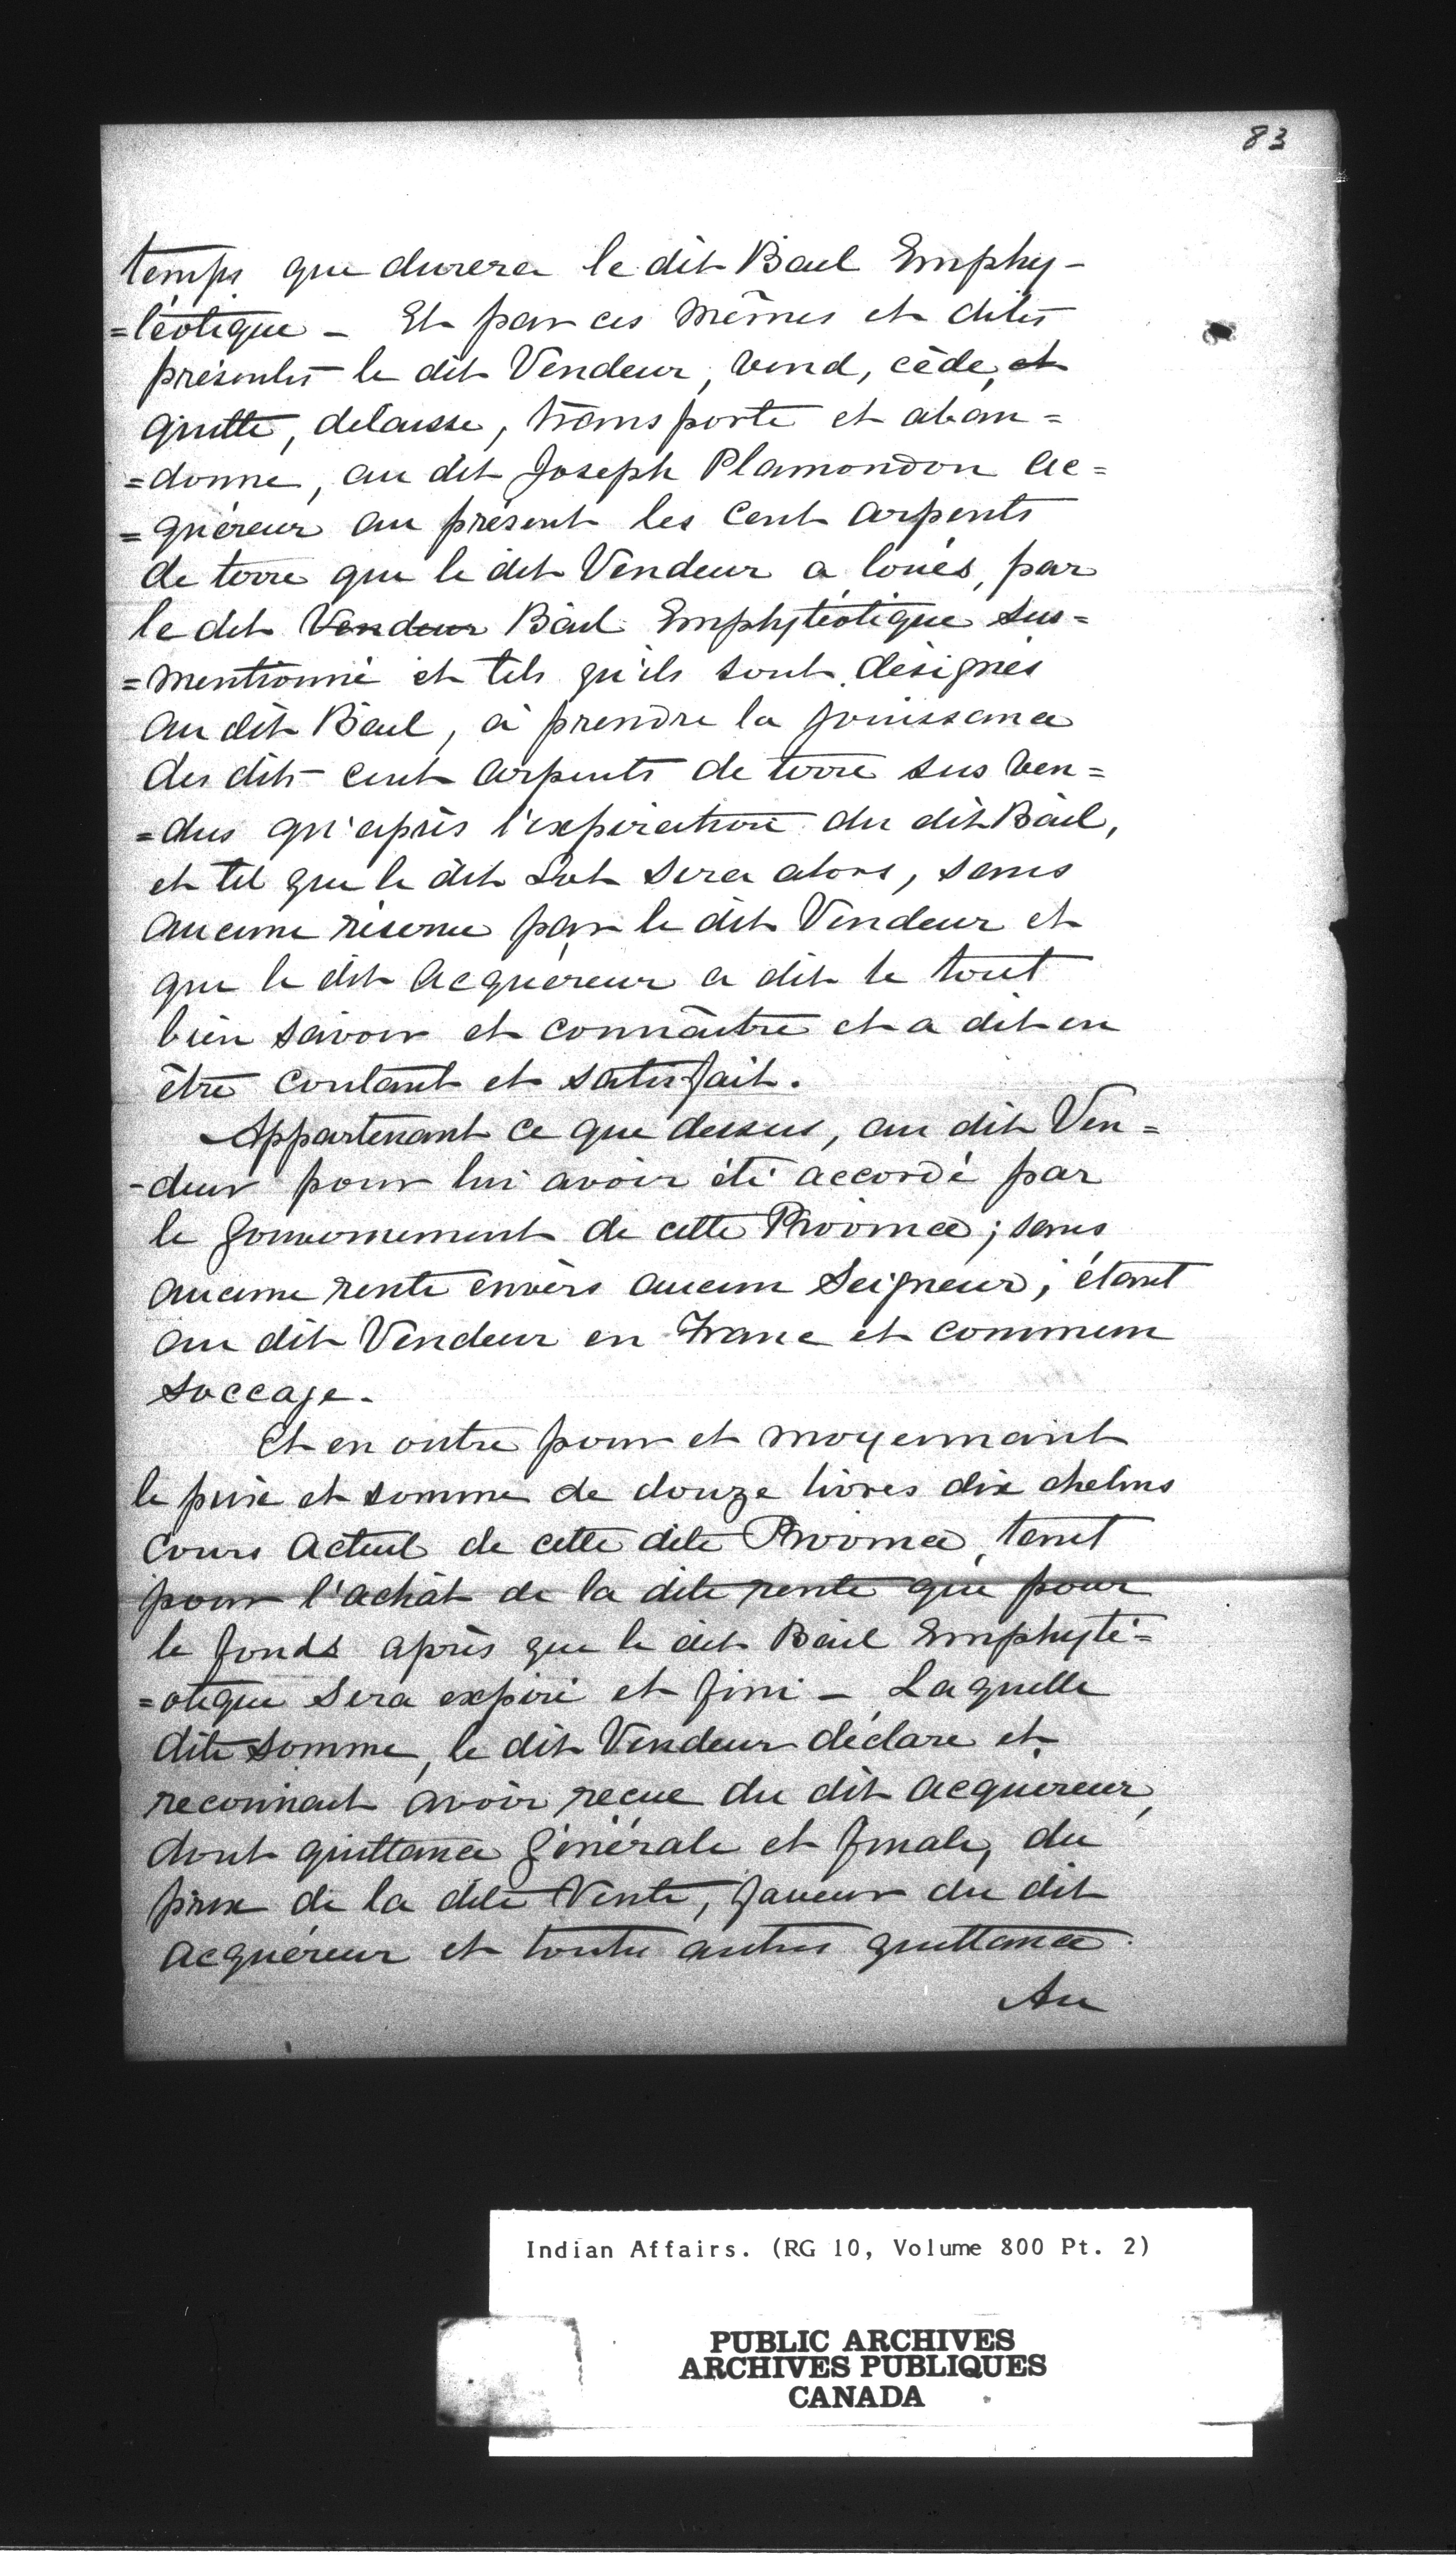 83
temps que durera le dit Bail Emphy-
=téotique - Et par ces mêmes et dites
présentes le dit Vendeur, vend, cède, et
quitte, delaisse, transporte et aban=
=donne, au dit Joseph Plamondon ac=
=quéreur au présent les cent arpents
de terre que le dit Vendeur a loués, par
le dit Vendeur Bail Emphytéotique sus=
=mentionné et tels qu'ils sont désignés
au dit Bail, à prendre la jouissance
des dits cent arpents de terre sus ven=
=dus qu'après l'expiration du dit Bail,
et tel que le dit Lot sera alors, sans
aucune réserve par le dit Vendeur et
que le dit acquéreur a dit le tout
bien savoir et connaitre et a dit en
être contant et satisfait.
Appartenant ce que dessus, au dit Ven=
-deur pour lui avoir été accordé par
le Gouvernement de cette Province; sans
aucune rente envers aucun Seigneur; étant
au dit Vendeur en Franc et commun
Soccage.
Et en outre pour et moyennant
le prix et somme de douze livres dix chelins
cours actuel de cette dite Province, tant
pour l'achât de la dite rente que pour
le fonds après que le dit Bail Emphyté=
=otique sera expiré et fini - Laquelle
dite somme, le dit Vendeur déclare et
reconnait avoir recue du dit acquéreur,
dont quittance générale et finale, du
prix de la dite Vente, faveur du dit
acquéreur et toutes autres quittance
Au
Indian Affairs. (RG 10, Volume 800 Pt. 2)
PUBLIC ARCHIVES
ARCHIVES PUBLIQUES
CANADA